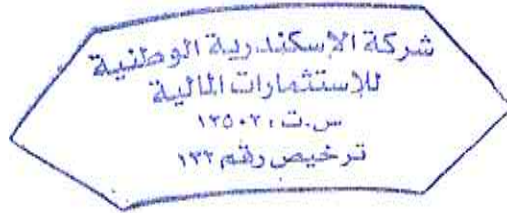 شركة الإسكندرية الوطنية
للإستثمارات المالية
س.ت : ١٣٥٠٢٠
ترخيص رقم ١٣٢